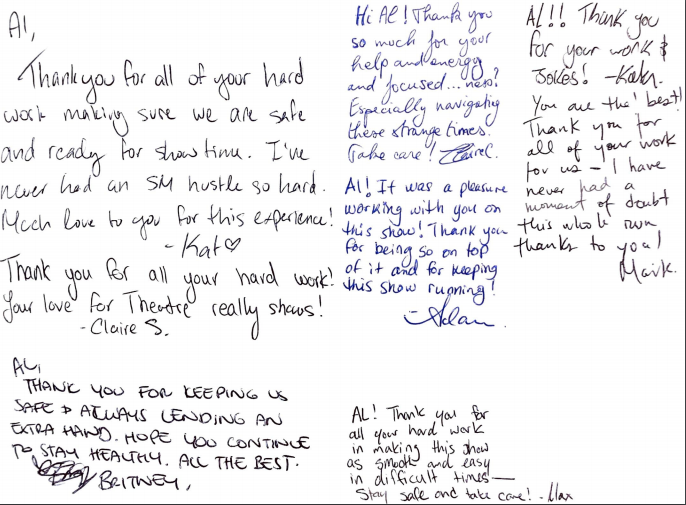 Al,
Thank you for all of your hard
work making sure we are safe
and ready for showtime. I've
never had an SM hustle so hard.
Much love to you for this experience!
- Kat♡
Thank you for all your hard work!
Your love for Theatre really shows!
- Claire S.
AL,
THANK YOU FOR KEEPING US
SAFE & ALWAYS LENDING AN
EXTRA HAND. HOPE YOU CONTINUE
TO STAY HEALTHY. ALL THE BEST.
BRITNEY.
Hi Al! Thank you
so much for your
help and energy
and focused...ness?
Especially navigating
these strange times.
Take care! Claire C.
Al! It was a pleasure
working with you on
this show! Thank you
for being so on top
of it and for keeping
this show running!
- Adam
AL! Thank you for
all your hard work
in making this show
as smooth and easy
in difficult times—
Stay safe and take care! - Max
AL!! Thank you
for your work &
Jokes!
You are the best!
Thank you for
all of your work
for us - I have
never had a
moment of doubt
this whole run
thanks to you!
Mark.